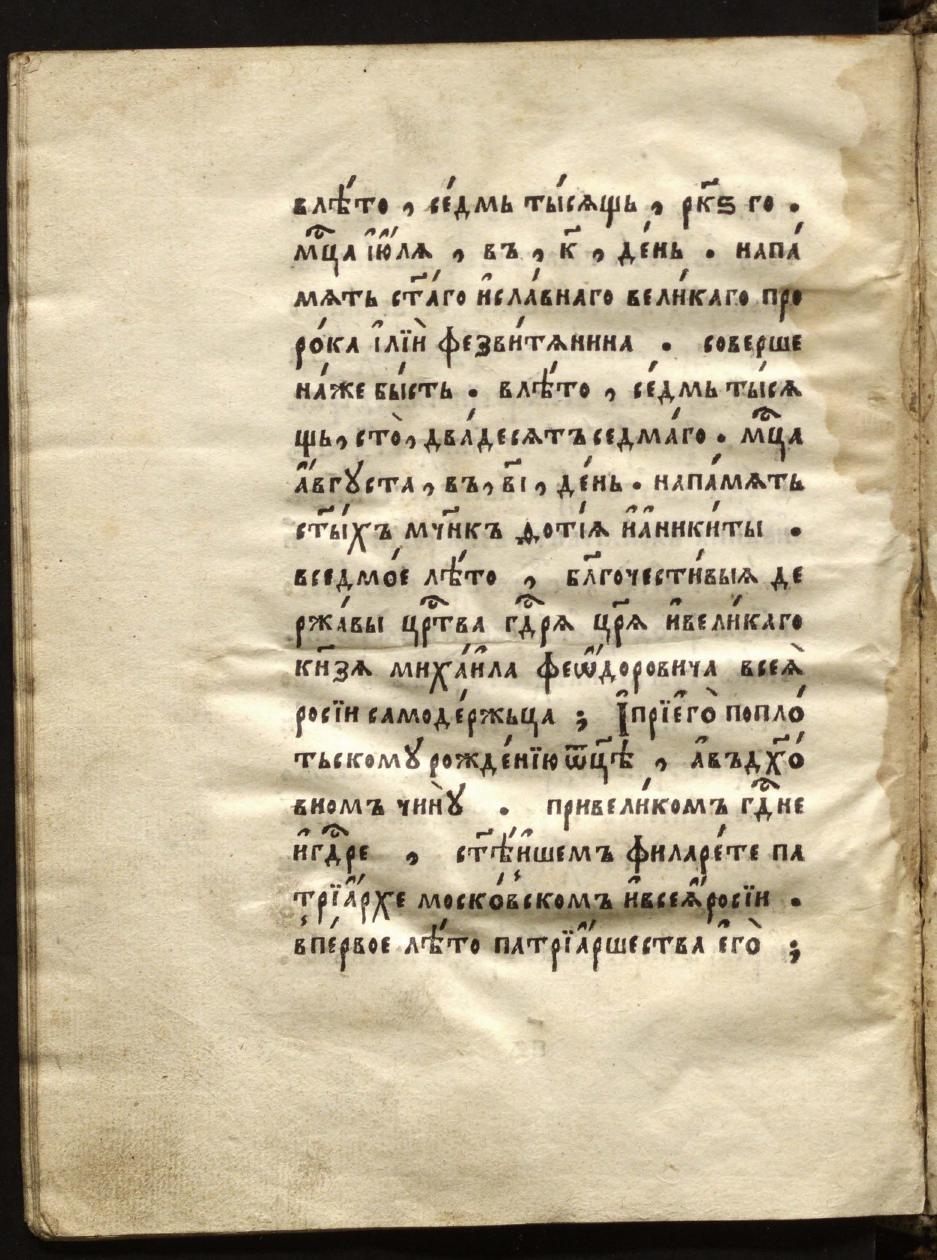 влѣ́то , се́дмь ты́сѧщь , рк҃ѕ го .
мⷭ҇ца і҆ю́лѧ , въ , к҃ , де́нь . напа́
мѧть ст҃а́го и҆сла́внаго вели́каго про
ро́ка і҆лїѝ фезви́тѧнина . соверше
на́же бы́сть . влѣ́то , се́дмь ты́сѧ
щь, сто̀, два́десѧтъ седма́го . мⷭ҇ца
а҆́вгꙋста , въ , в҃і , де́нь . напа́мѧть
ст҃ы́хъ мч҃нкъ фоті́ѧ и҆а҆ники́ты .
вседмо́е лѣ́то , бл҃гочести́выѧ де
ржа́вы црⷭ҇тва гдⷭ҇рѧ цр҃ѧ и҆вели́каго
кн҃зѧ миха́и҆ла феѡ҆́доровича всеѧ̀
росі́и самоде́ржьца ; І҆прїе҆го̀ попло́
тьскомꙋ рожде́нїю ѿц҃ѣ̀ , а҆въдх҃о́
вномъ чи́нꙋ . привели́комъ гдⷭ҇не
и҆гдⷭ҇ре , ст҃ѣ́йшемъ филаре́те па
трїа҆́рхе моско́вскомъ и҆всеѧ҆̀росі́и .
впе́рвое лѣ́то патрїа҆́ршества е҆го̀ ;